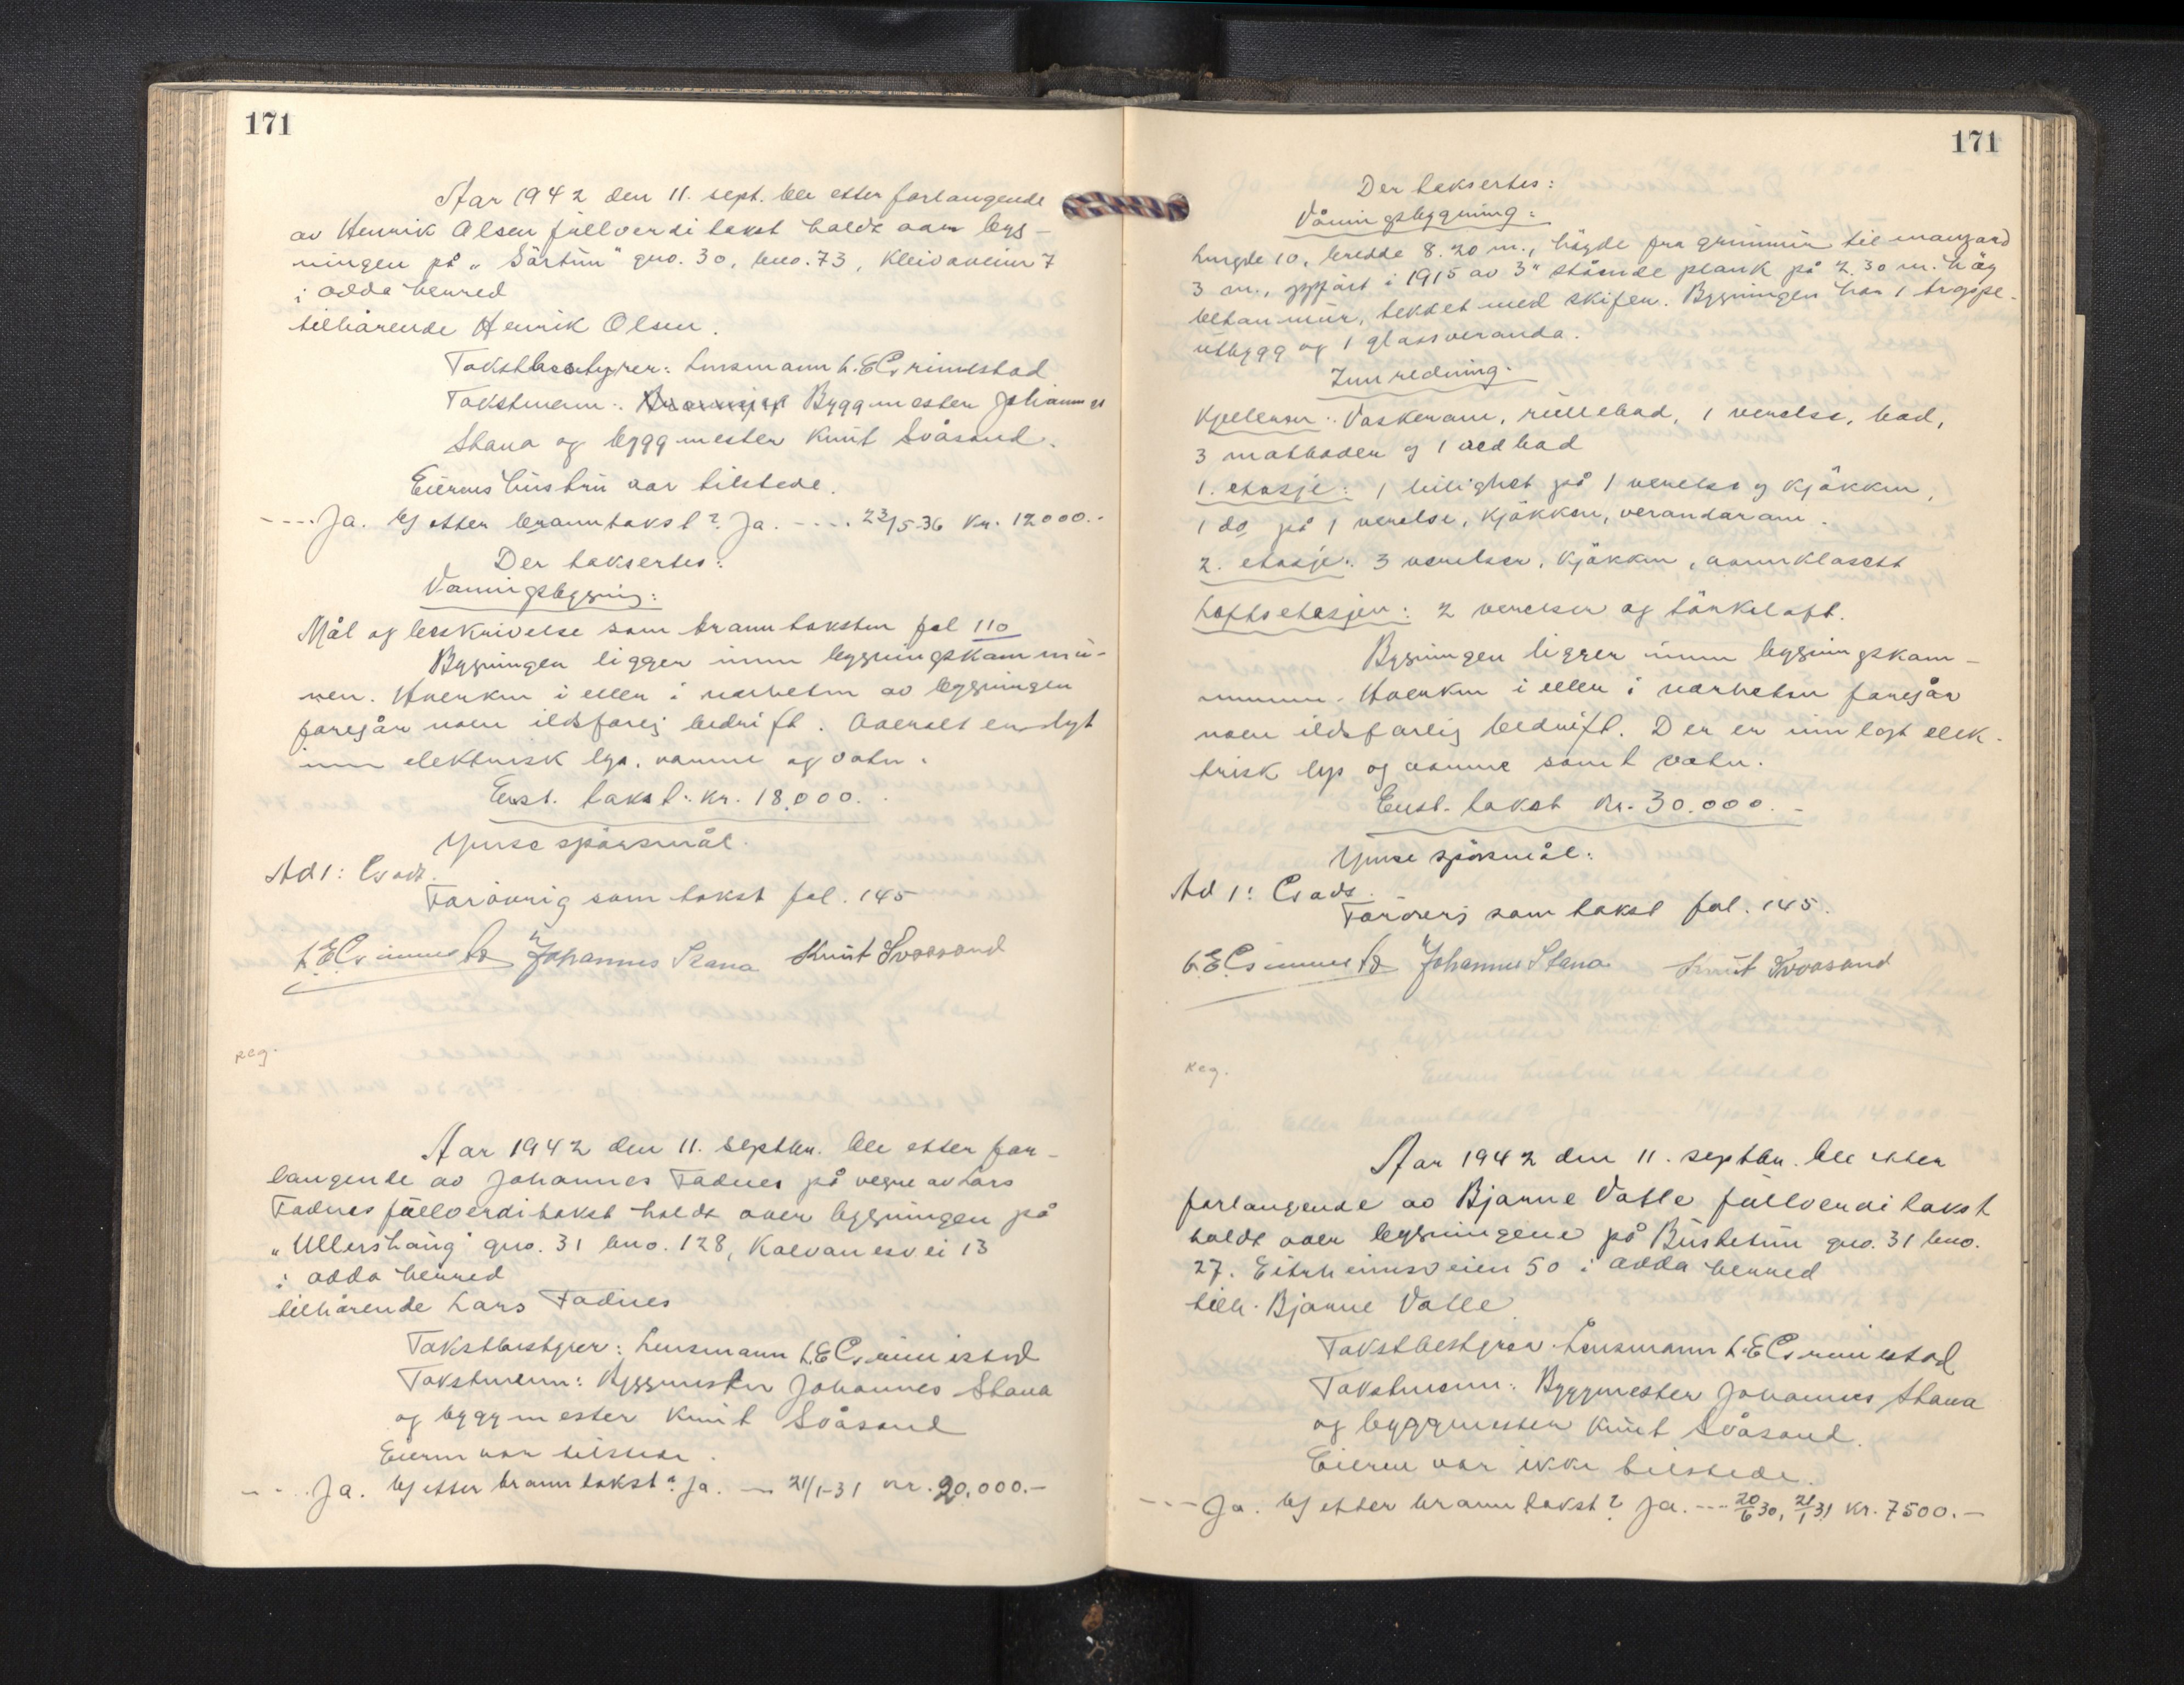 171
Aar 1942 den 11. sept. ble etter forlangende
av Henrik Olsen fullverditakst holdt over byg-
ningen på "Sørtun" gno. 30, bno. 73, Kleivavein 7
i Odda herred
tilhørende Henrik Olsen.
Takstbestyrer: Lensmann L. E. Grimestad
Takstmenn: Byggmester Johannes
Stana og byggmester Knut Svåsand.
Eierens hustru var tilstede.
---- Ja. b) etter branntakst? Ja. ---- 23/5-36 Kr. 12000.-
Der taksertes:
Våningsbygning:
Mål og beskrivelse som branntaksten fol 110
Bygningen ligger innen bygningskommu-
nen. Hverken i eller i nærheten av bygningen
foregår noen ildsfarlig bedrift. Overalt er lagt
inn elektrisk lys, varme og vatn.
Enst. takst: Kr. 18.000.-
Ymse spørsmål.
Ad 1: Godt.
Forøvrig som takst fol. 145
L. E. Grimestad Johannes Stana Knut Svaasand
Reg.
Aar 1942 den 11. septbr. ble etter for-
langende av Johannes Tadnes på vegne av Lars
Tadnes fullverditakst holdt over bygningen på
"Ullershaug" gno. 31 bno. 128, Kalvanesvei 13
i Odda herred
tilhørende Lars Tadnes
Takstbestyrer: Lensmann L. E. Grimestad
Takstmenn: Byggmester Johannes Stana
og byggmester Knut Svåsand
Eieren var tilstede.
--- Ja. b) etter branntakst? Ja. — 21/1-31 Kr. 20.000.-
171
Der taksertes:
Våningsbygning:
Lengde 10, bredde 8.20 m., høgde fra grunnmur til mansard
3 m., oppført i 1915 av 3" stående plank på 2.30 m. høg
betonmur, tekket med skifer. Bygningen har 1 trappe-
utbygg og 1 glassveranda.
Innredning.
Kjelleren: Vaskerom, rullebod, 1 værelse, bad,
3 matboder og 1 vedbod
1. etasje: 1 leilighet på 1 værelse og kjøkken,
1 do på 1 værelse, kjøkken, verandarom.
2. etasje: 3 værelser, kjøkken, vannklosett
Loftsetasjen: 2 værelser og tørkeloft.
Bygningen ligger innen bygningskom-
munen. Hverken i eller i nærheten foregår
noen ildsfarlig bedrift. Der er innlagt elek-
trisk lys og varme samt vatn.
Enst. takst Kr. 30.000.-
Ymse spørsmål:
Ad 1: Godt.
Forøvrig som takst fol. 145.
L. E. Grimestad Johannes Stana Knut Svaasand
Reg.
Aar 1942 den 11. septbr. ble etter
forlangende av Bjarne Valle fullverditakst
holdt over bygningene på Busletun gno. 31 bno.
27. Eitrheimsveien 50 i Odda herred
tilh. Bjarne Valle
Takstbestyrer: Lensmann L. E. Grimestad
Takstmenn: Byggmester Johannes Stana
og byggmester Knut Svåsand.
Eieren var ikke tilstede.
--- Ja. b) etter branntakst? Ja. --- 20/6 30, 21/1 31 Kr. 7500.-